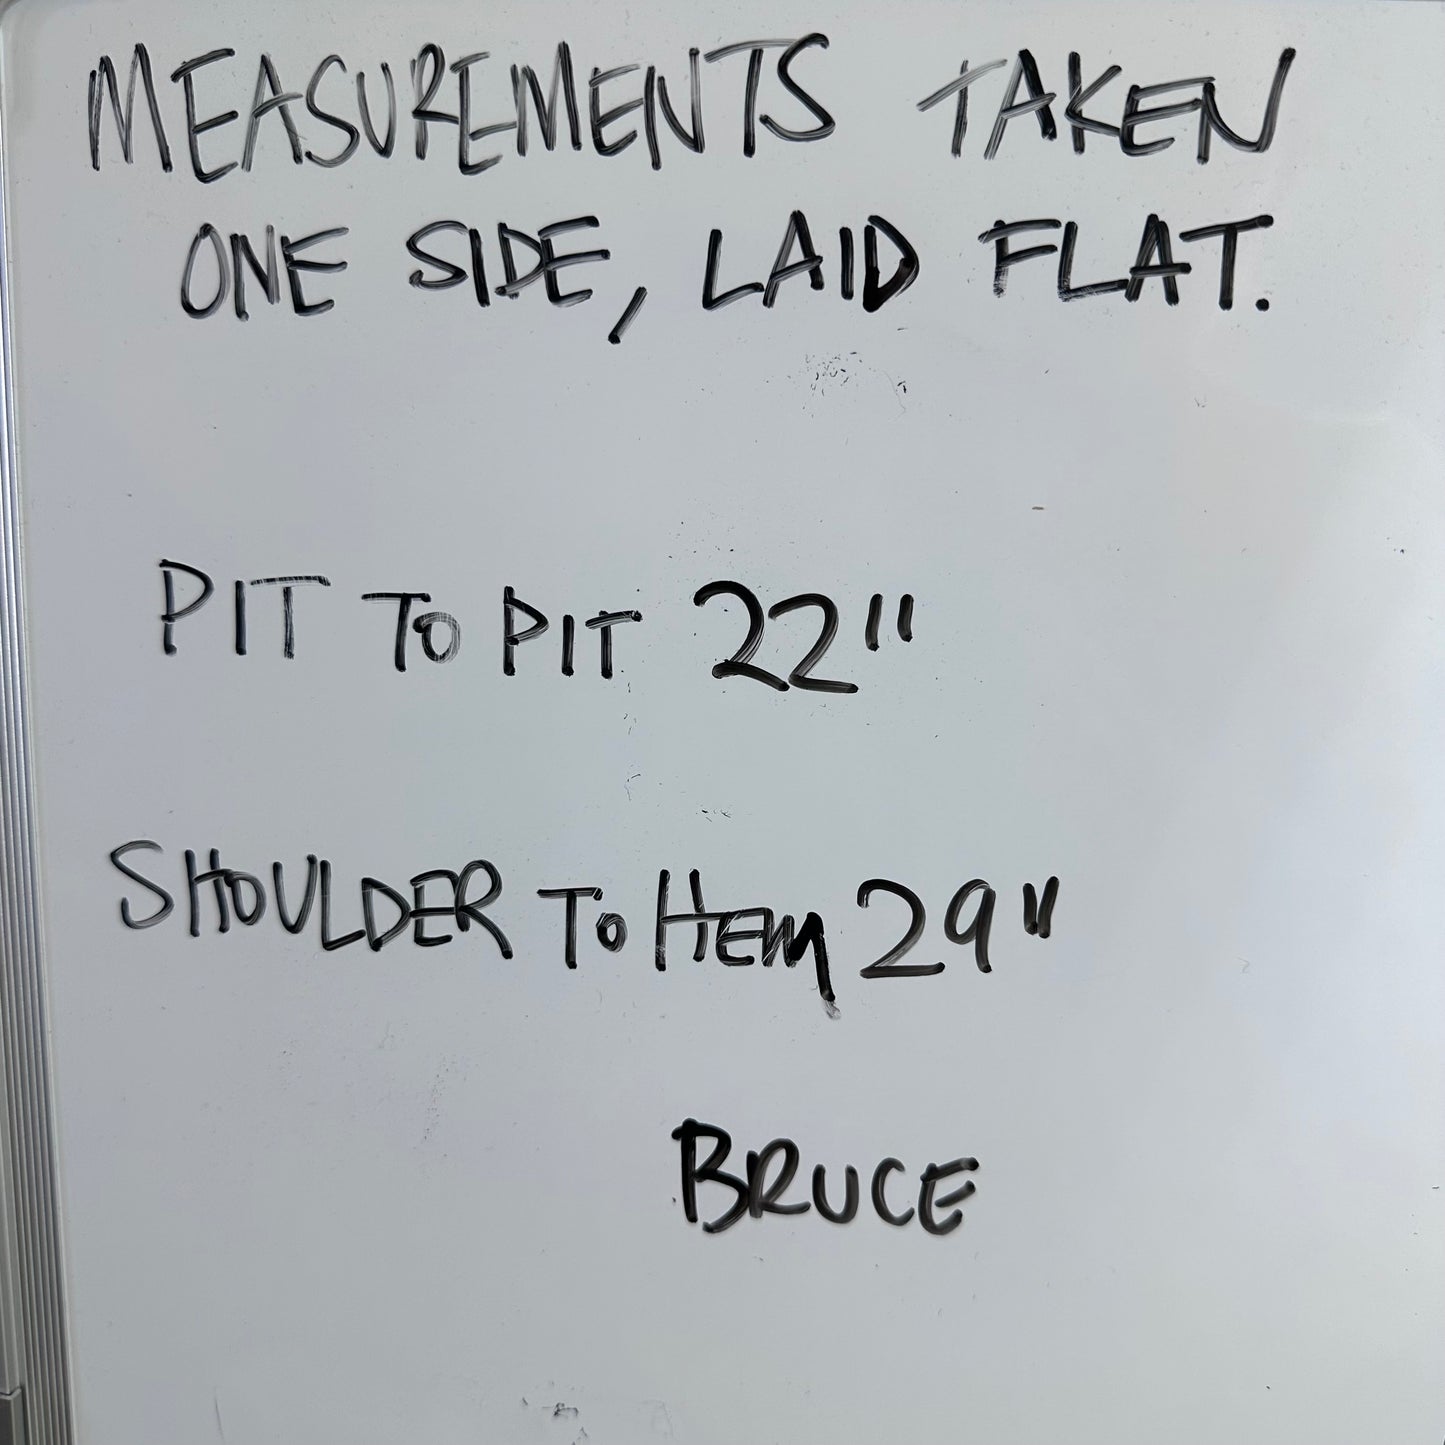 MEASUREMENTS TAKEN
ONE SIDE, LAID FLAT.
PIT TO PIT 22"
SHOULDER TO HEM 29"
BRUCE